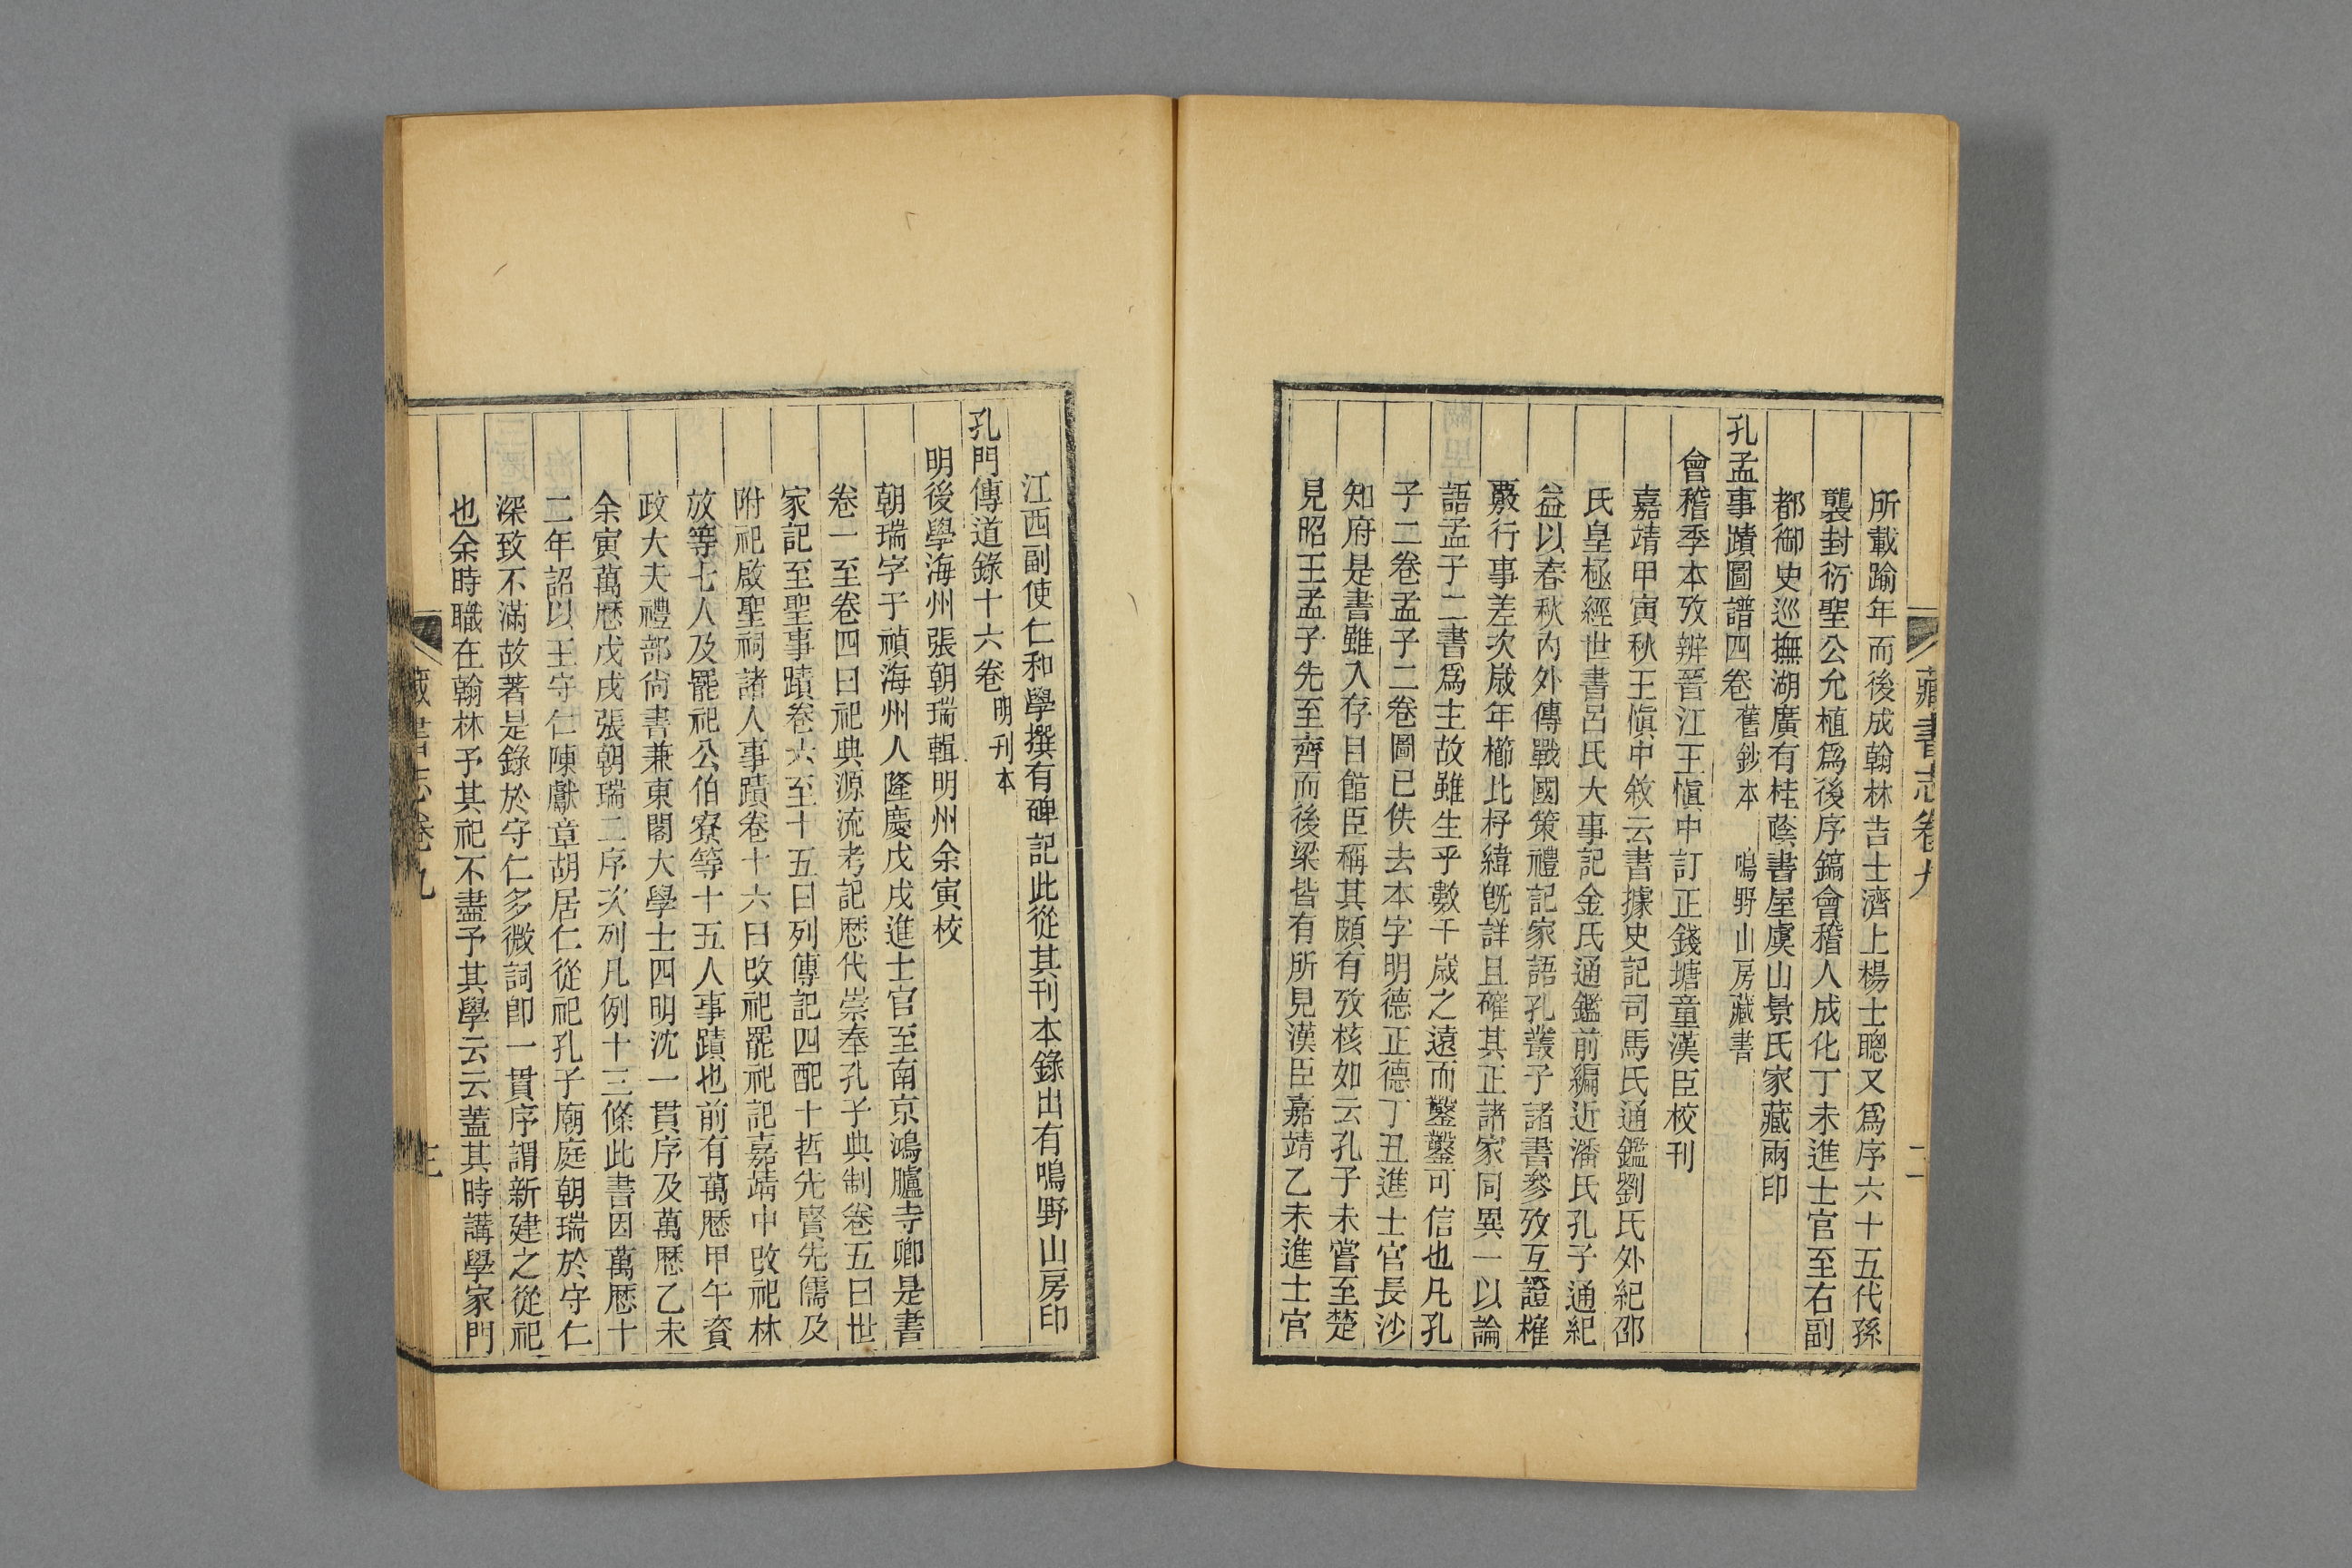 藏書志卷九
二
所載踰年而後成翰林吉士濟上楊士聰又爲序六十五代孫
襲封衍聖公允植爲後序鎬會稽人成化丁未進士官至右副
都御史巡撫湖廣有桂蔭書屋虞山景氏家藏兩印
孔孟事蹟圖譜四卷 舊鈔本 鳴野山房藏書
會稽季本攷辨晉江王愼中訂正錢塘童漢臣校刊
嘉靖甲寅秋王愼中敘云書據史記司馬氏通鑑劉氏外紀邵
氏皇極經世書呂氏大事記金氏通鑑前編近潘氏孔子通紀
益以春秋內外傳戰國策禮記家語孔叢子諸書參攷互證榷
覈行事差次歲年櫛比杼緯旣詳且確其正諸家同異一以論
語孟子二書爲主故雖生乎數千歲之遠而鑿鑿可信也凡孔
子二卷孟子二卷圖已佚去本字明德正德丁丑進士官長沙
知府是書雖入存目館臣稱其頗有攷核如云孔子未嘗至楚
見昭王孟子先至齊而後梁皆有所見漢臣嘉靖乙未進士官
江西副使仁和學撰有碑記此從其刊本錄出有鳴野山房印
孔門傳道錄十六卷 明刊本
明後學海州張朝瑞輯明州余寅校
朝瑞字子禎海州人隆慶戊戌進士官至南京鴻臚寺卿是書
卷一至卷四曰祀典源流考記歷代崇奉孔子典制卷五曰世
家記至聖事蹟卷六至十五曰列傳記四配十哲先賢先儒及
附祀啟聖祠諸人事蹟卷十六曰改祀罷祀記嘉靖中改祀林
放等七人及罷祀公伯寮等十五人事蹟也前有萬歷甲午資
政大夫禮部尙書兼東閣大學士四明沈一貫序及萬歷乙未
余寅萬歷戊戌張朝瑞二序次列凡例十三條此書因萬歷十
二年詔以王守仁陳獻章胡居仁從祀孔子廟庭朝瑞於守仁
深致不滿故著是錄於守仁多微詞卽一貫序謂新建之從祀
也余時職在翰林予其祀不盡予其學云云蓋其時講學家門
藏書志卷九
三